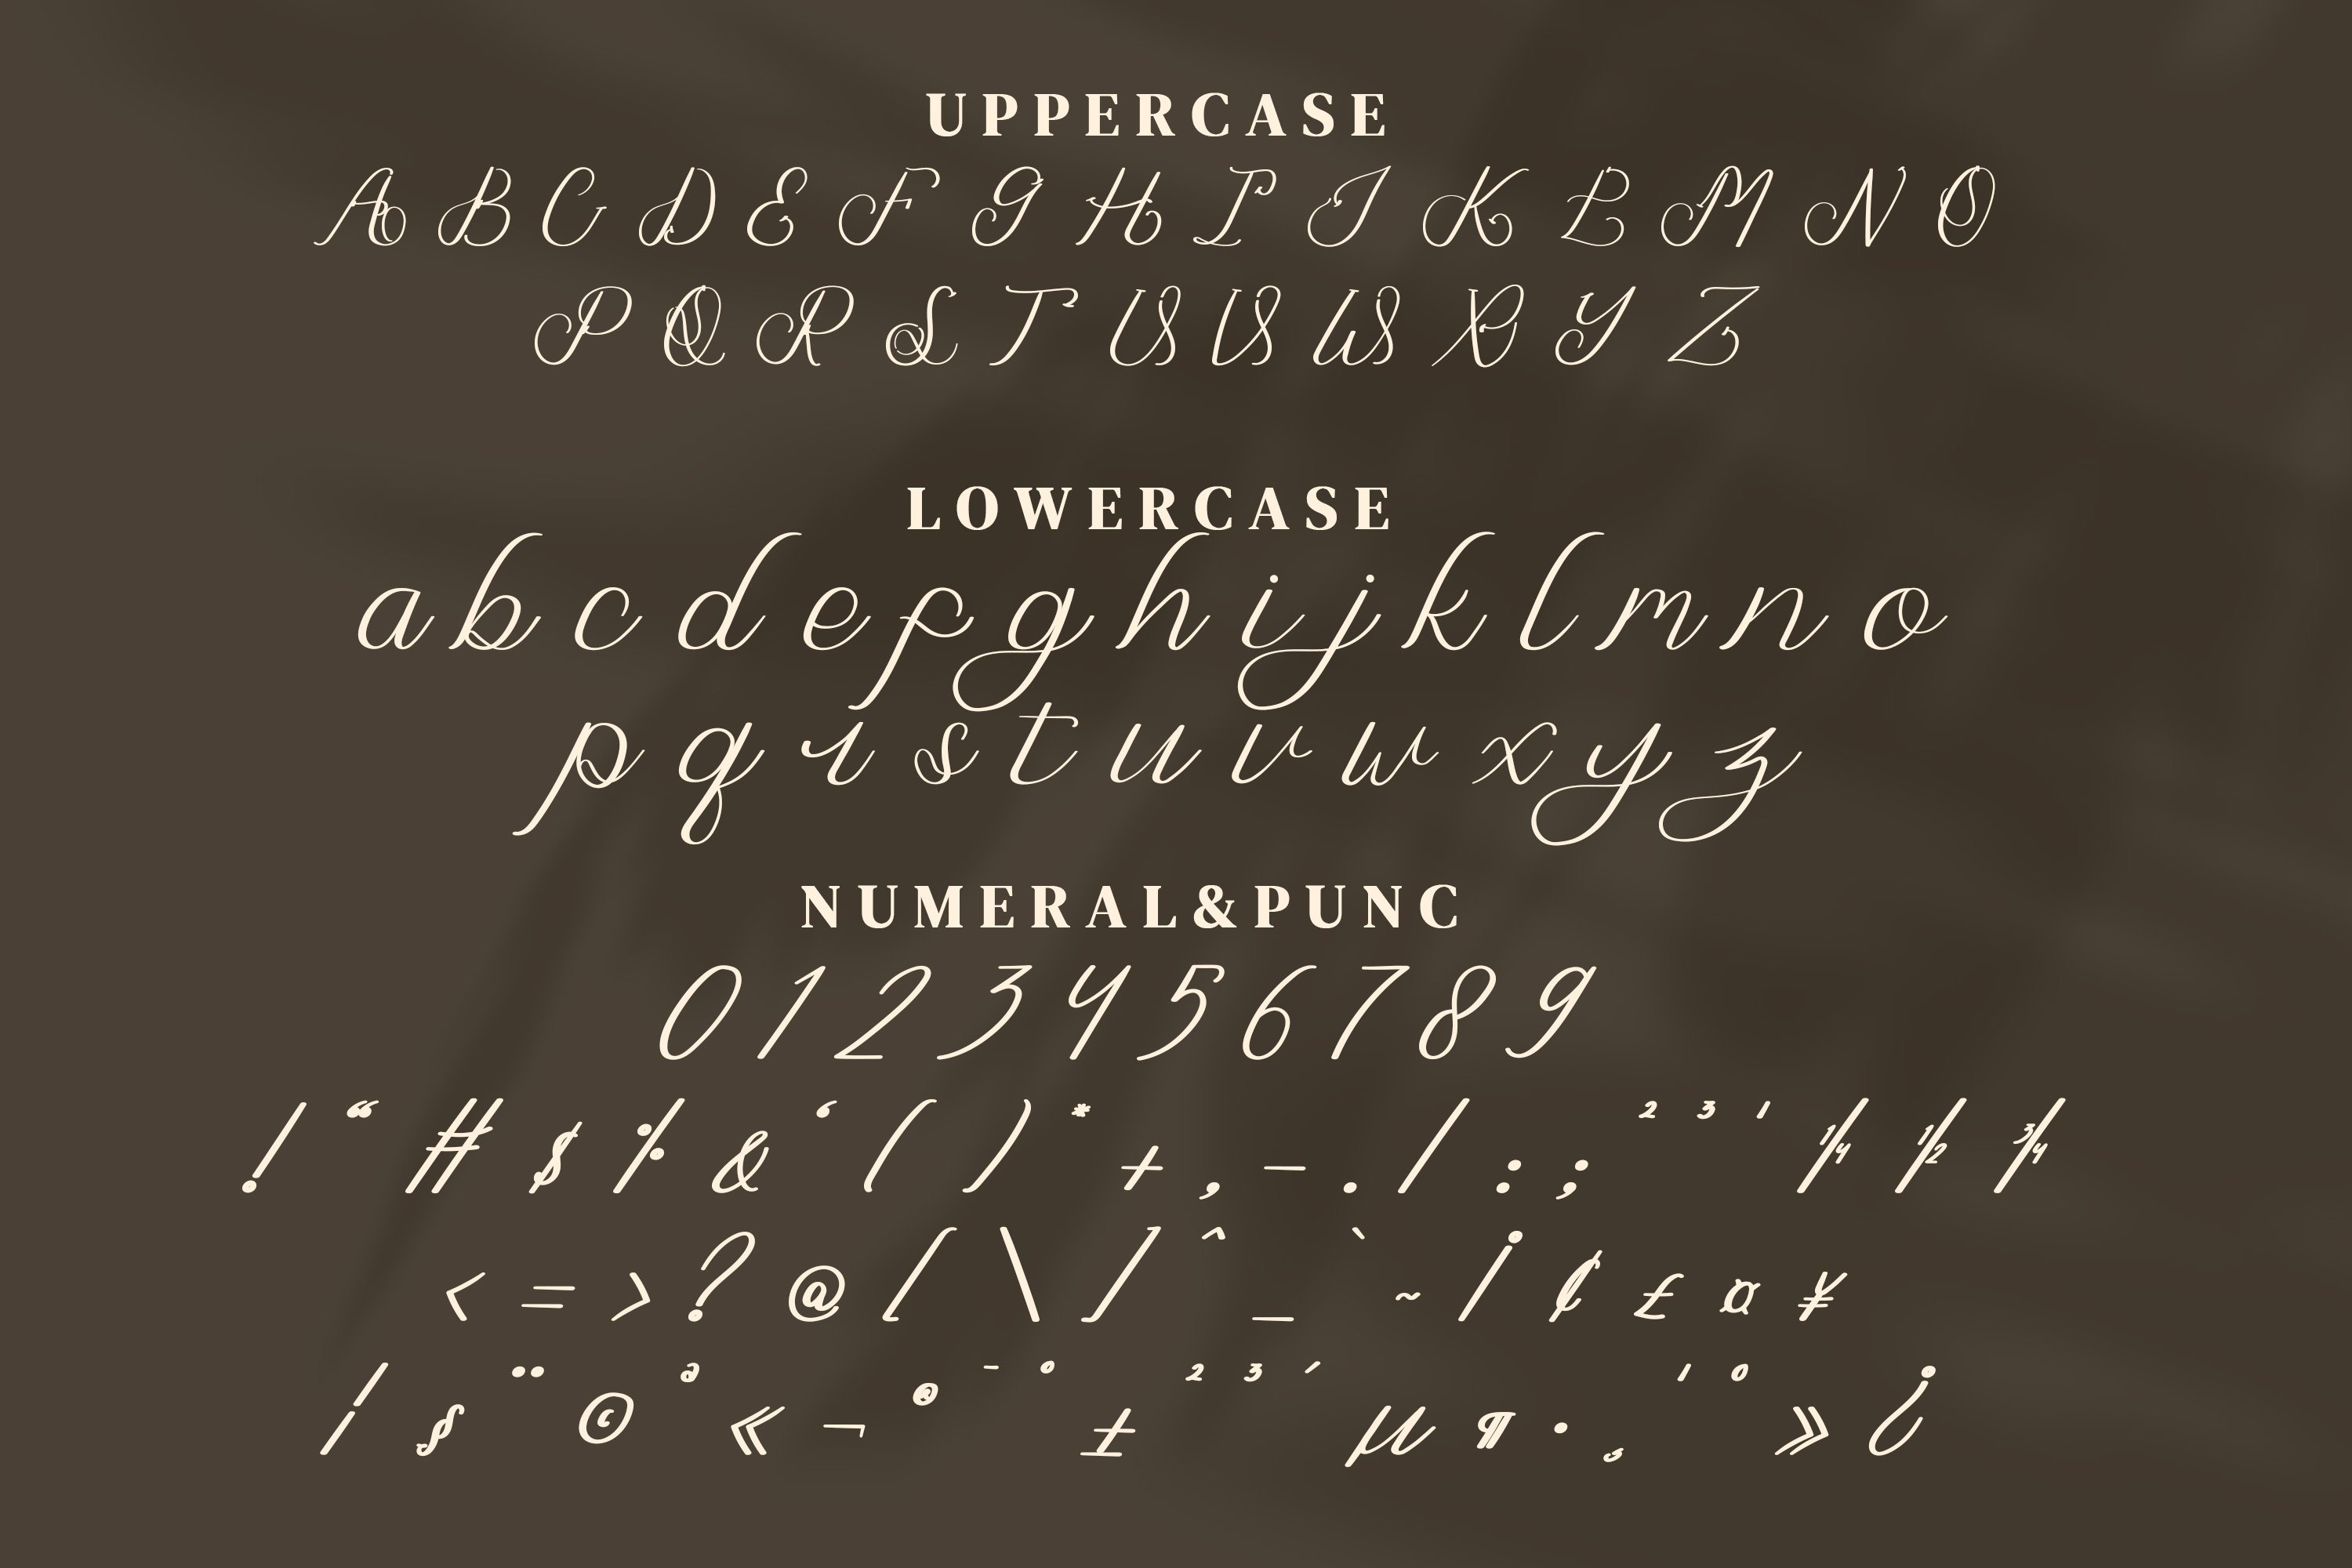 UPPERCASE
A B C D E F G H I J K L M N O
P Q R S T U V W X Y Z
LOWERCASE
a b c d e f g h i j k l m n o
p q r s t u v w x y z
NUMERAL&PUNC
0 1 2 3 4 5 6 7 8 9
! “ # $ % & ‘ ( ) * + , – . / : ; ² ³ ¹ ¼ ½ ¾
< = > ? @ [ \ ] ^ _ ` ~ ¡ ¢ £ ¤ ¥
¦ § ¨ © ª « ¬ ® ¯ ° ± ² ³ ´ µ ¶ · ¸ ¹ º » ¿